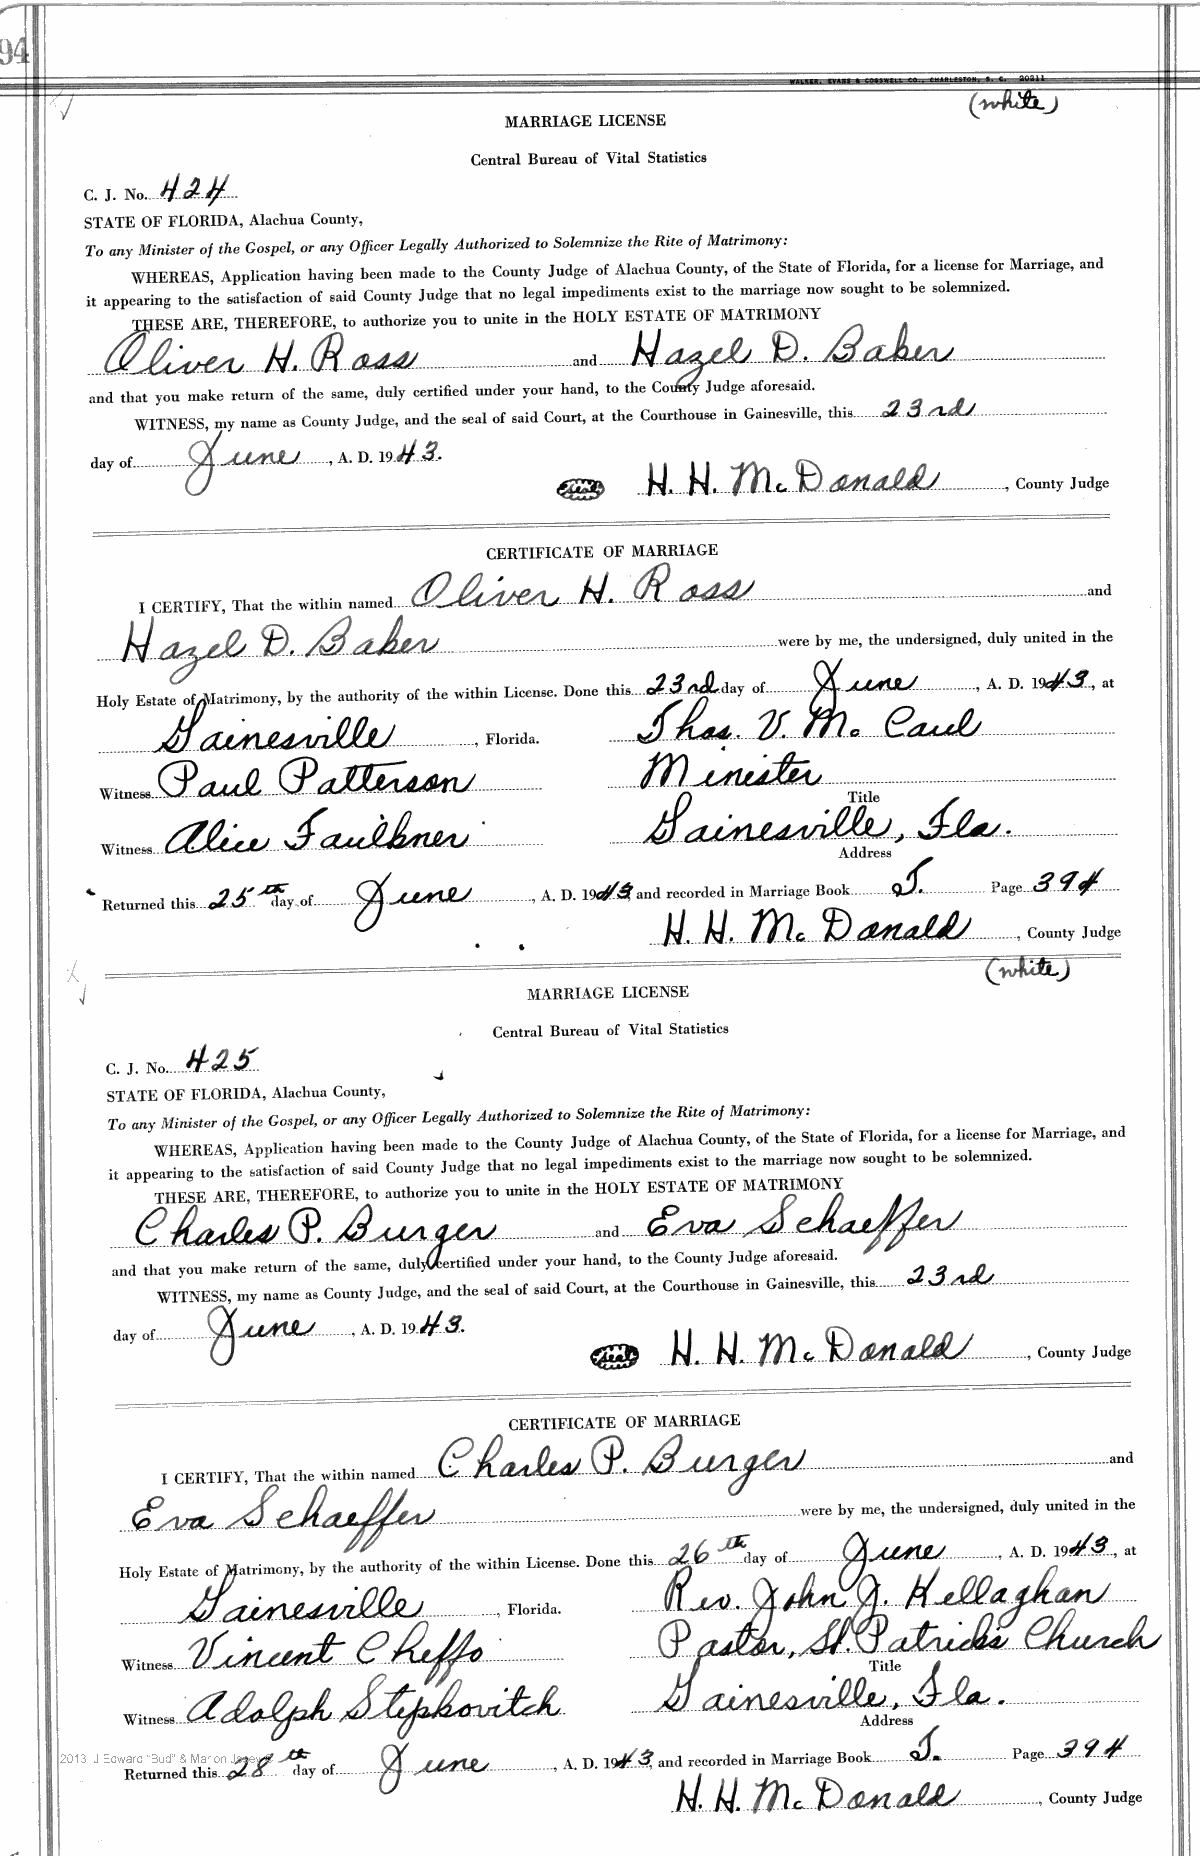 94
WALKER, EVANS & COGSWELL CO., CHARLESTON, S. C. 20211
(white)
MARRIAGE LICENSE
Central Bureau of Vital Statistics
C. J. No. 424
STATE OF FLORIDA, Alachua County,
To any Minister of the Gospel, or any Officer Legally Authorized to Solemnize the Rite of Matrimony:
WHEREAS, Application having been made to the County Judge of Alachua County, of the State of Florida, for a license for Marriage, and
it appearing to the satisfaction of said County Judge that no legal impediments exist to the marriage now sought to be solemnized.
THESE ARE, THEREFORE, to authorize you to unite in the HOLY ESTATE OF MATRIMONY
Oliver H. Ross and Hazel D. Baker
and that you make return of the same, duly certified under your hand, to the County Judge aforesaid.
WITNESS, my name as County Judge, and the seal of said Court, at the Courthouse in Gainesville, this 23rd
day of June, A. D. 1943.
seal H. H. McDonald, County Judge
CERTIFICATE OF MARRIAGE
I CERTIFY, That the within named Oliver H. Ross and
Hazel D. Baker were by me, the undersigned, duly united in the
Holy Estate of Matrimony, by the authority of the within License. Done this 23rd day of June, A. D. 1943, at
Gainesville, Florida. Thos. V. Mc Caul
Witness Paul Patterson Minister
Title
Witness Alice Faulkner Gainesville, Fla.
Address
Returned this 25th day of June, A. D. 1943, and recorded in Marriage Book T. Page 394
H. H. McDonald, County Judge
(white)
MARRIAGE LICENSE
Central Bureau of Vital Statistics
C. J. No. 425
STATE OF FLORIDA, Alachua County,
To any Minister of the Gospel, or any Officer Legally Authorized to Solemnize the Rite of Matrimony:
WHEREAS, Application having been made to the County Judge of Alachua County, of the State of Florida, for a license for Marriage, and
it appearing to the satisfaction of said County Judge that no legal impediments exist to the marriage now sought to be solemnized.
THESE ARE, THEREFORE, to authorize you to unite in the HOLY ESTATE OF MATRIMONY
Charles P. Burger and Eva Schaeffer
and that you make return of the same, duly certified under your hand, to the County Judge aforesaid.
WITNESS, my name as County Judge, and the seal of said Court, at the Courthouse in Gainesville, this 23rd
day of June, A. D. 1943.
seal H. H. McDonald, County Judge
CERTIFICATE OF MARRIAGE
I CERTIFY, That the within named Charles P. Burger and
Eva Schaeffer were by me, the undersigned, duly united in the
Holy Estate of Matrimony, by the authority of the within License. Done this 26th day of June, A. D. 1943, at
Gainesville, Florida. Rev. John J. Kellaghan
Witness Vincent Cheffo Pastor, St. Patrick's Church
Title
Witness Adolph Stepkovitch Gainesville, Fla.
Address
2013 J Edward "Bud" & Marion
Returned this 28th day of June, A. D. 1943, and recorded in Marriage Book T. Page 394
H. H. McDonald, County Judge